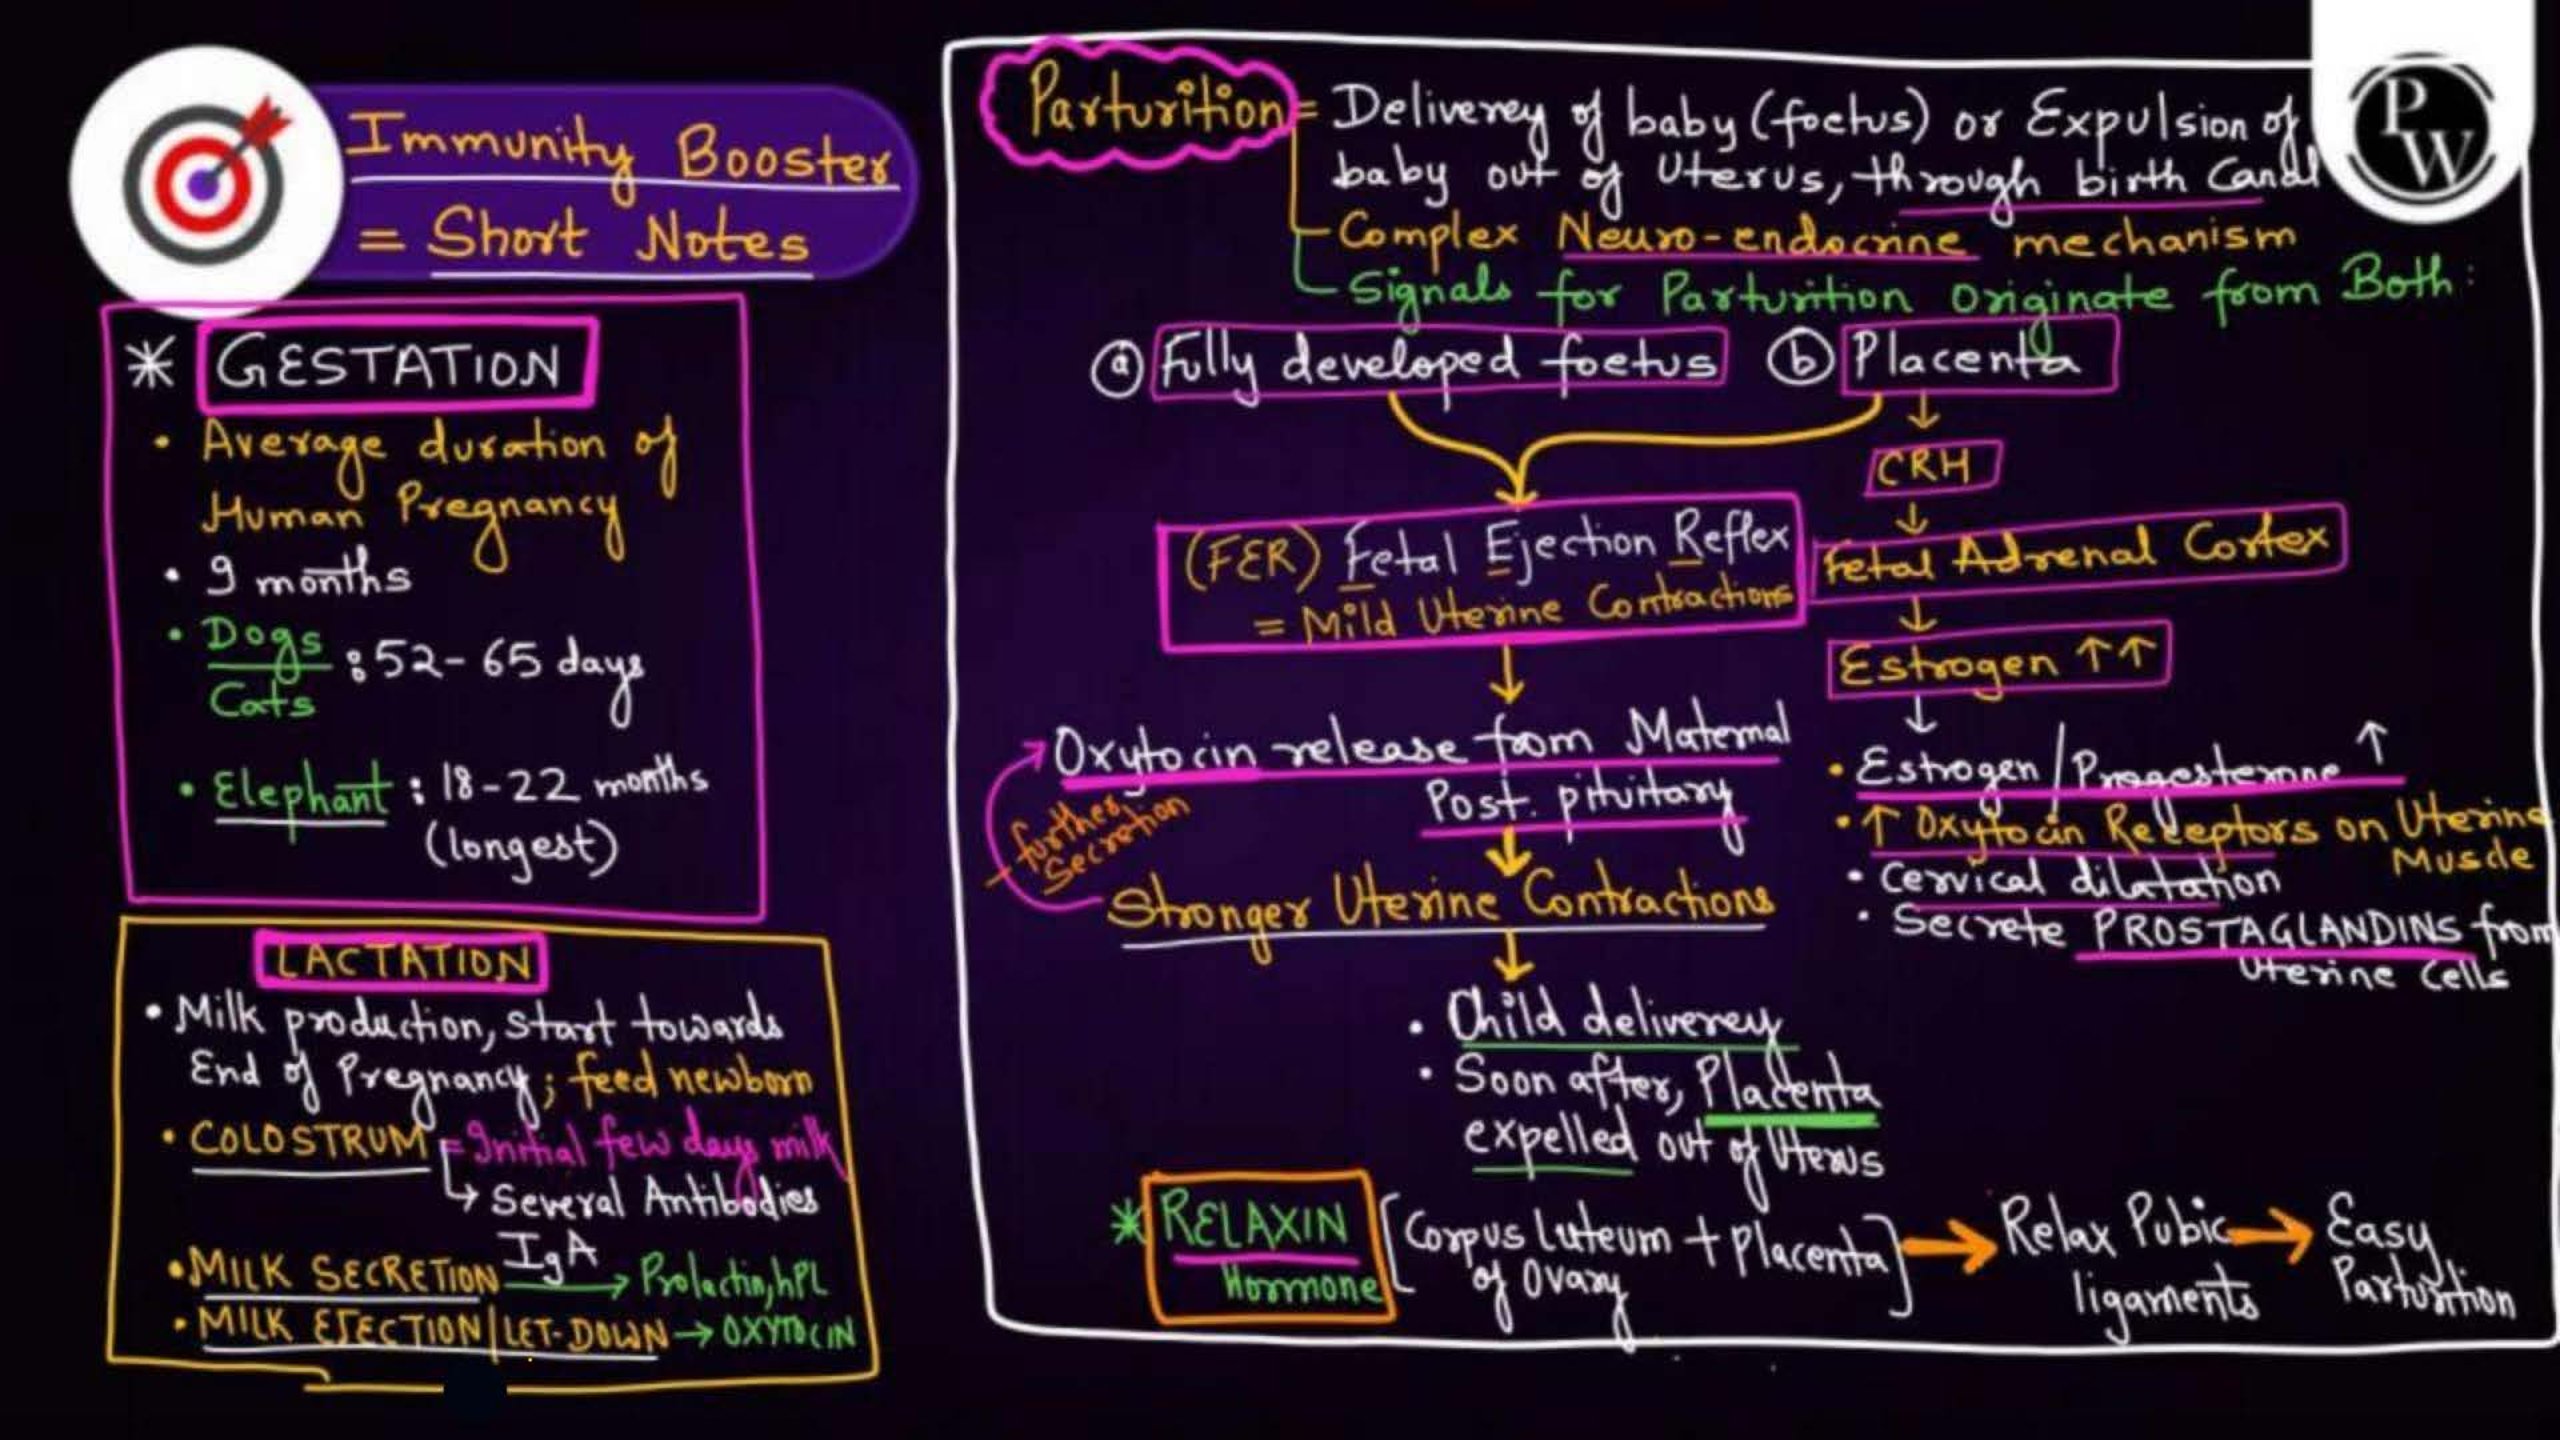 Immunity Booster
= Short Notes
* GESTATION
• Average duration of
Human Pregnancy
• 9 months
• Dogs
Cats
: 52-65 days
• Elephant : 18-22 months
(longest)
LACTATION
• Milk production, start towards
End of Pregnancy; feed newborn
• COLOSTRUM = Initial few days milk
↳ Several Antibodies
IgA
• MILK SECRETION → Prolactin, hPL
• MILK EJECTION/LET-DOWN → OXYTOCIN
Parturition = Deliverey of baby (foetus) or Expulsion of
baby out of Uterus, through birth Canal
Complex Neuro-endocrine mechanism
Signals for Parturition Originate from Both:
ⓐ Fully developed foetus ⓑ Placenta
(FER) Fetal Ejection Reflex
= Mild Uterine Contractions
Oxytocin release from Maternal
Post. pituitary
further
Secretion
Stronger Uterine Contractions
• Child deliverey
• Soon after, Placenta
expelled out of Uterus
↓
CRH
↓
Fetal Adrenal Cortex
↓
Estrogen ↑↑
↓
• Estrogen/Progesterone ↑
• ↑ Oxytocin Receptors on Uterine
Muscle
• Cervical dilatation
• Secrete PROSTAGLANDINS from
Uterine Cells
* RELAXIN
Hormone
[Corpus Luteum + Placenta]
of Ovary
→ Relax Pubic
ligaments
→ Easy
Parturition
PW